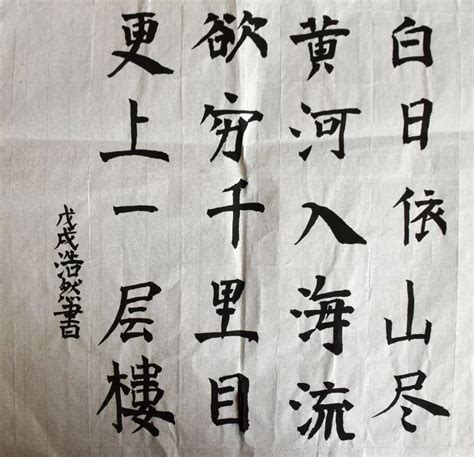 白日依山尽
黄河入海流
欲穷千里目
更上一层樓
戊戌浩然書